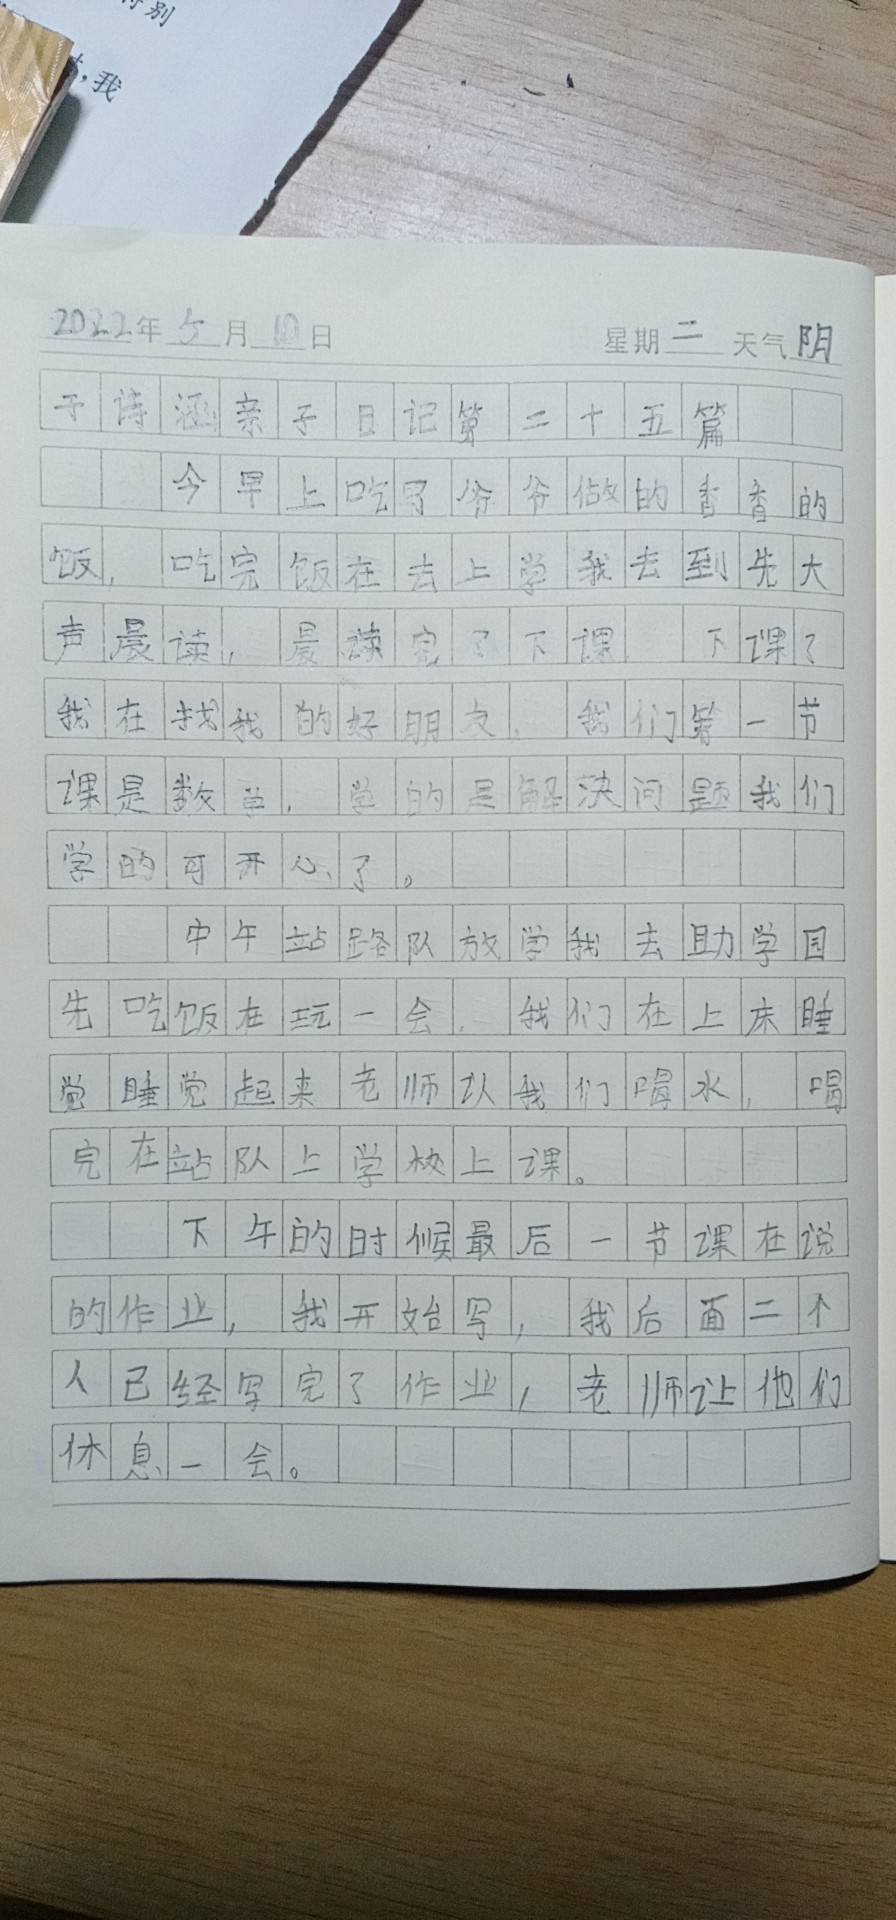 特别
,我
2022年5月10日 星期二 天气阴
于诗涵亲子日记第二十五篇
今早上吃了爷爷做的香香的
饭,吃完饭在去上学我去到先大
声晨读,晨读完了下课 下课了
我在找我的好朋友,我们第一节
课是数学,学的是解决问题我们
学的可开心了。
中午站路队放学我去助学园
先吃饭在玩一会,我们在上床睡
觉睡觉起来老师以我们喝水,喝
完在站队上学校上课。
下午的时候最后一节课在说
的作业,我开始写,我后面二个
人已经写完了作业,老师让他们
休息一会。